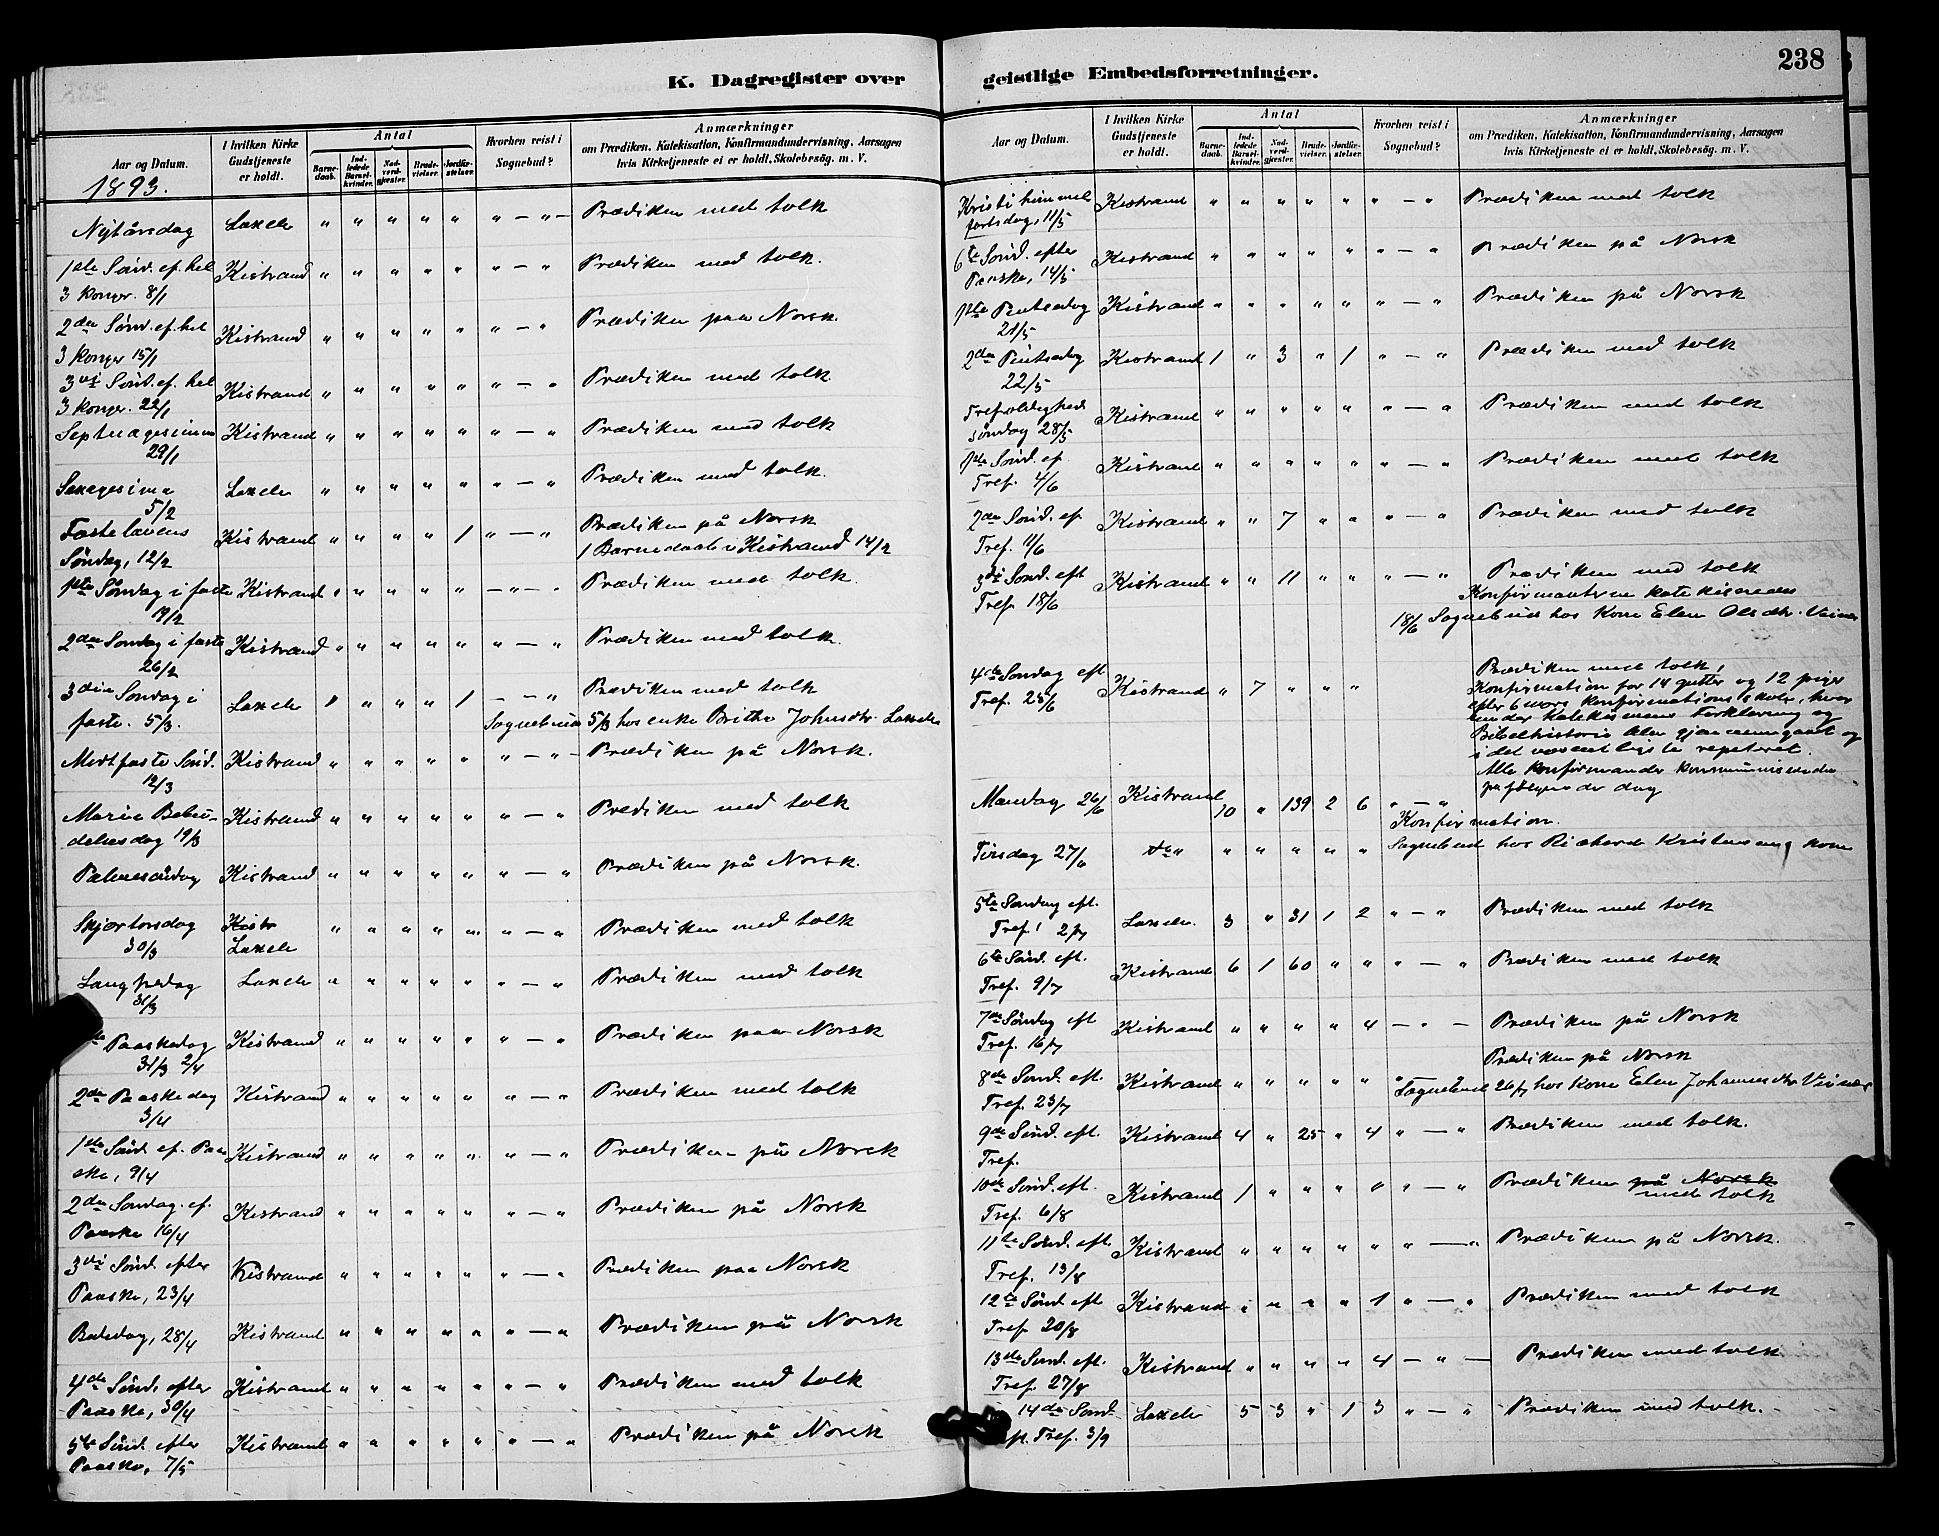 K. Dagregister over
Aar og Datum.
1893.
I hvilken Kirke Gudstjeneste er holdt.
Antal
Barne-daab.
Ind-ledede Barsel-kvinder.
Nad-verd-gjæster.
Brude-vielser.
Jordfæ-stelser.
Hvorhen reist i Sognebud?
Anmærkninger
om Prædiken, Katekisation, Konfirmandundervisning, Aarsagen
hvis Kirketjeneste ei er holdt, Skolebesög. m. V.
Nytårsdag Laxelv " " " " " " — " — Prædiken med tolk
1ste Sönd. ef. hel Kistrand " " " " " " — " Prædiken med tolk.
3 konger. 8/1
2den Sönd. ef. hel Kistrand " " " " " " — " Prædiken paa Norsk.
3 konger 15/1
3die Sönd. ef. hel Kistrand " " " " " " — " Prædiken med tolk.
3 konger. 22/1
Septuagesima Kistrand " " " " " " — " Prædiken med tolk
29/1
Sexagesima Laxelv " " " " " " — " Prædiken med tolk.
5/2
Fastelavens Kistrand " " " " 1 " — " Prædiken på Norsk
Söndag, 12/2 1 Barnedaab i Kistrand 14/2
1ste Söndag i faste Kistrand " " " " " — " — " Prædiken med tolk.
19/2
2den Söndag i faste Kistrand " " " " " " — " Prædiken med tolk.
26/2
3die Söndag i Laxelv " " " " 1 — " — " Prædiken med tolk
faste. 5/3. Sognebud 5/3 hos enke Brithe Johnsdtr. Laxelv
Midtfaste Sönd. Kistrand " " " " " " — " — Prædiken på Norsk.
12/3
Maria Bebu- Kistrand " " " " " " — " Prediken med tolk
delsesdag 19/3
Palmesöndag Kistrand " " " " " " — " Prædiken på Norsk.
Skjærtorsdag Kistr " " " " " " — " Prædiken med tolk
30/3 Laxelv
Langfredag Laxelv " " " " " " — " Prædiken med tolk
31/3
Paaskedag Kistrand " " " " " " — " Prædiken paa Norsk
31/3 2/4
2den Paaskedag Kistrand " " " " " " — " Prædiken med tolk
3/4
1ste Sönd. ef. Paa Kistrand " " " " " " — " Prædiken på Norsk
ske, 9/4
2den Söndag. ef. Kistrand " " " " " " — " Prædiken på Norsk
Paaske 16/4
3die Sönd. efter Kistrand " " " " " " — " Prædiken paa Norsk
Paaske, 23/4
Bededag, 28/4 Kistrand " " " " " " — " Prædiken på Norsk
4de Sönd. efter Kistrand " " " " " " — " Prædiken med tolk
Paaske, 30/4
5te Sönd. efter Kistrand " " " " " " — " Prædiken på Norsk
Paaske, 7/5
geistlige Embedsforretninger.
238
Aar og Datum.
I hvilken Kirke Gudstjeneste er holdt.
Antal
Barne-daab.
Ind-ledede Barsel-kvinder.
Nad-verd-gjæster.
Brude-vielser.
Jordfæ-stelser.
Hvorhen reist i Sognebud?
Anmærkninger
om Prædiken, Katekisation, Konfirmandundervisning, Aarsagen
hvis Kirketjeneste ei er holdt, Skolebesög. m. V.
Kristi himmel Kistrand " " " " " " — " Prædiken med tolk
fartsdag, 11/5
6te Sönd. efter Kistrand " " " " " " — " Prædiken på Norsk
Paaske, 14/5
1ste Pintsedag Kistrand " " " " " " — " Prædiken på Norsk
21/5
2den Pintsedag Kistrand 1 " 3 " 1 " — " Prædiken med tolk
22/5
Trefoldigheds Kistrand " " " " " " — " Prædiken med tolk
söndag 28/5
1ste Sönd. ef. Kistrand " " " " " " — " Prædiken med tolk
Tref. 4/6
2den Sönd. ef. Kistrand " " 7 " " " — " Prædiken med tolk
Tref. 11/6
3die Sönd. eft Kistrand " " 11 " " " — " Prædiken med tolk
Tref. 18/6 Konfirmanterne katekiseredes
18/6 Sognebud hos Kone Elen Olsdtr.
4de Söndag eft Kistrand " 7 " " " Prædiken med tolk,
Tref. 25/6 Konfirmation for 14 gutter og 12 piger
efter 6 ugers konfirmationsskole, hvor
under Katekismens Forklaring og
Bibelhistorie blev gjennemgaaet og
i det væsentligste repeteret.
Alle konfirmander kommunicerede
påfölgende dag
Mandag 26/6 Kistrand 10 " 139 2 6 " — "
Konfirmation.
Tirsdag 27/6 do " " " " " Sognebud hos Richard Kristensens kone
5te Söndag eft. Laxelv. 3 " 31 1 2 " — " Prædiken med tolk
Tref. 2/7
6te Sönd. eft. Kistrand 6 1 60 " " " — " Prædiken med tolk
Tref. 9/7
7de Söndag eft Kistrand " " " " 4 — " — Prædiken på Norsk
Tref. 16/7
Prædiken på Norsk
8de Sönd. eft. Kistrand " " " " " " Sognebud 26/7 hos Kone Elen Johannesdtr
Tref. 23/7
9de Sönd. eft. Kistrand 4 " 25 " 4 " — " Prædiken med tolk.
Tref.
10de Sönd. eft. Kistrand 1 " " " " " — " Prædiken på Norsk
Tref. 6/8 med tolk
11te Sönd. eft. Kistrand " " " " " " — " Prædiken på Norsk.
Tref. 13/8
12te Sönd. eft Kistrand " " " " 1 " — " Prædiken med tolk
Tref 20/8
13de Sönd. eft. Kistrand " " " " 4 — " — Prædiken med tolk
Tref. 27/8
14de Sönd Laxelv 5 3 " 1 3 " — " Prædiken med tolk.
Tref. 3/9